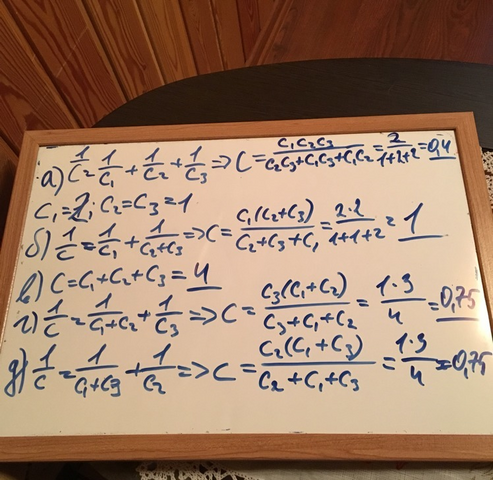 а) 1/C = 1/C₁ + 1/C₂ + 1/C₃ => C = C₁C₂C₃/(C₂C₃+C₁C₃+C₁C₂) = 2/(1+2+2) = 0,4
C₁=2; C₂=C₃=1
б) 1/C = 1/C₁ + 1/(C₂+C₃) => C = C₁(C₂+C₃)/(C₂+C₃+C₁) = 2·2/(1+1+2) = 1
в) C=C₁+C₂+C₃=4
г) 1/C = 1/(C₁+C₂) + 1/C₃ => C = C₃(C₁+C₂)/(C₃+C₁+C₂) = 1·3/4 = 0,75
д) 1/C = 1/(C₁+C₃) + 1/C₂ => C = C₂(C₁+C₃)/(C₂+C₁+C₃) = 1·3/4 = 0,75